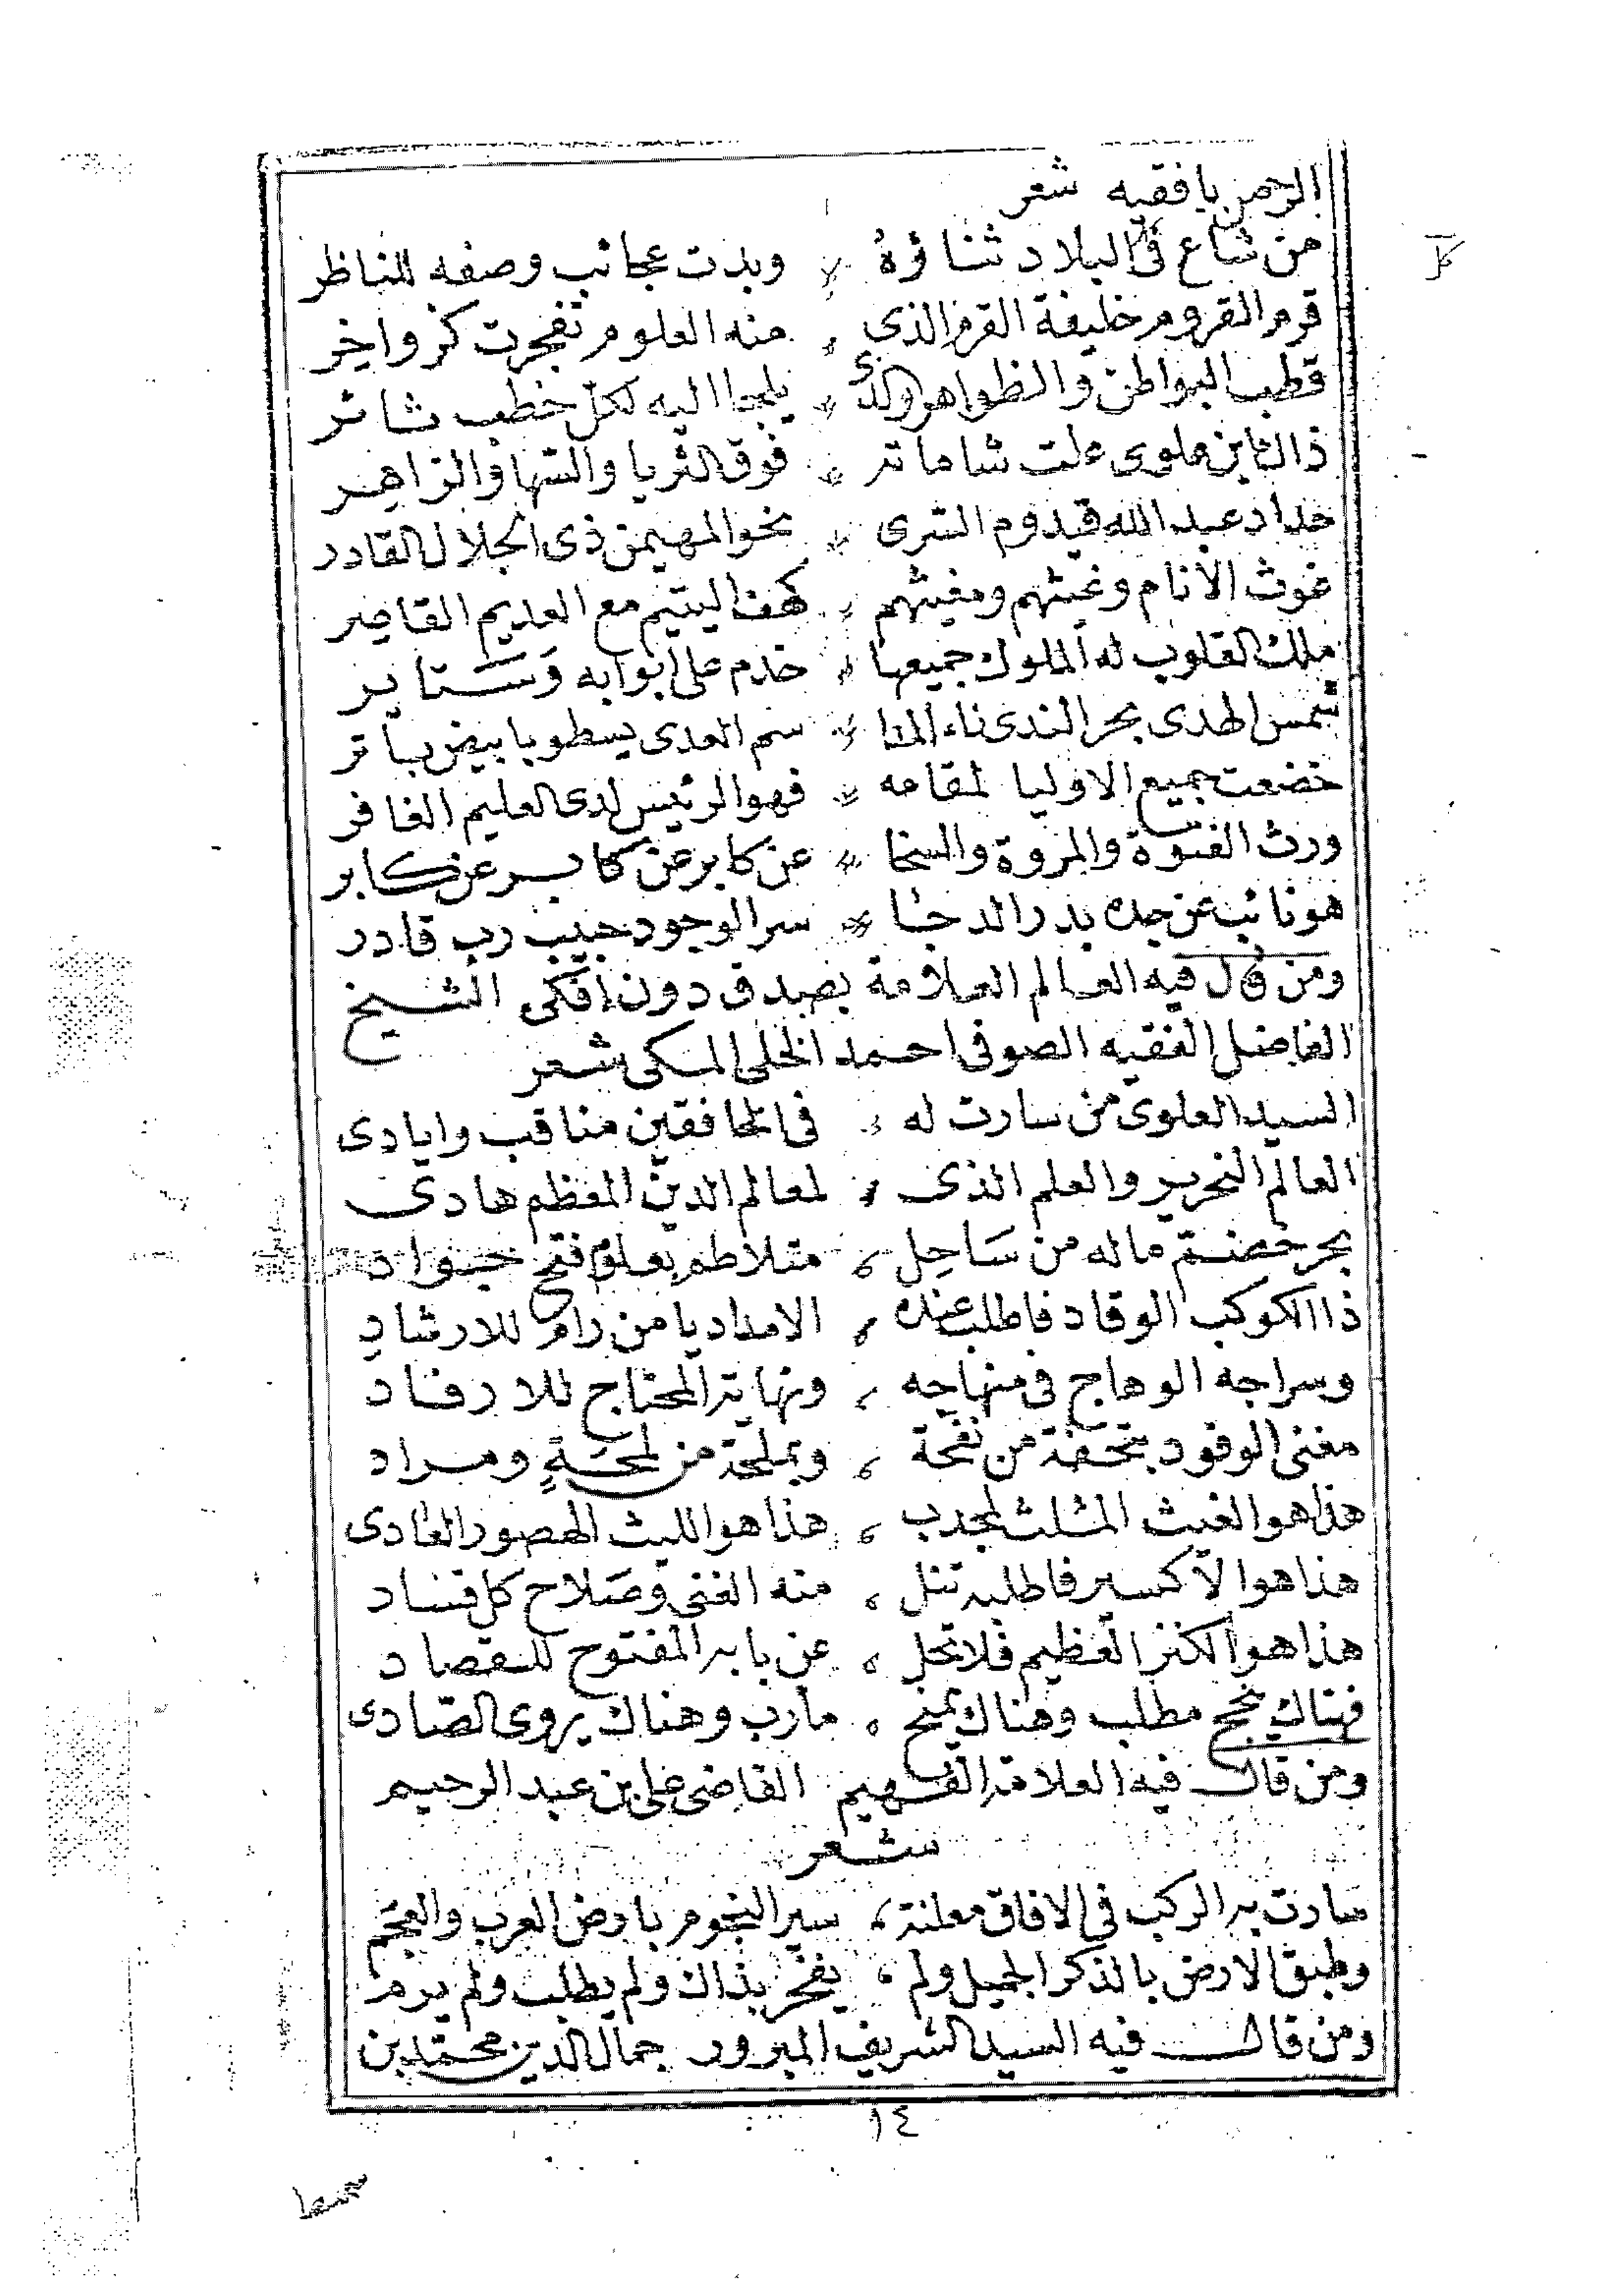 الرحمن بافقيه شعر
من شاع في البلاد ثناؤهُ وبدت عجائب وصفه للناظر
قرم القروم خليفة القرم الذى منه العلوم تفجرت كزواخِر
قطب البواطن والظواهر والذى يلجا اليه لكل خطب ثائر
ذاك ابن علوى علت شاماته فوق الثريا والسها والزاهر
حداد عبد الله قيدوم السرى نحو المهيمن ذى الجلال القادر
غوث الانام وغيثهم ومغيثهم كهف اليتيم مع العديم القاصِر
ملك القلوب له الملوك جميعها خدم على ابوابه وَسَتاير
شمس الهدى بحر الندى ناء المدا سم العدى يسطو بابيض باتر
خضعت جميع الاوليا لمقامه فهو الرئيس لدى العليم الغافر
ورث الفتوة والمروة والسخا عن كابر عن كابر عن كابر
هو نائب عن جده بدر الدجا سر الوجود حبيب رب قادر
ومن قال فيه العالم العلامة بصدق دون افكى الشيخ
الفاضل الفقيه الصوفى احمد الخلى المكى شعر
السيد العلوى من سارت له فى الخافقين مناقب وايادى
العالم النحرير والعلم الذى لمعالم الدين المعظم هادى
بحر خضم ماله من سَاحِل متلاطم بعلوم فتح جواد
ذا الكوكب الوقاد فاطلب عنده الامداد يا من رام للارشادِ
وسراجه الوهاج فى منهاجه ونهاية المحتاج للارفاد
مغنى الوفود بتحفة من نفحة وبملحة من لمحَةٍ ومراد
هذا هو الغيث الملث لمجدب هذا هو الليث الهصور العادى
هذا هو الاكسير فاطلبه تنل منه الغنى وصَلاح كل فساد
هذا هو الكنز العظيم فلا تحل عن بابه المفتوح للقصاد
فهناك ينجح مطلب وهناك يمنح مارب وهناك يروى الصّادى
ومن قال فيه العلامة الفهيم القاضى على بن عبد الرحيم
شعر
سارت به الركب فى الافاق معلنة سير النجوم بارض العرب والعجم
وطبق الارض بالذكر الجميل ولم يفخر بذاك ولم يطلب ولم يرم
ومن قال فيه السيد الشريف المبرور جمال الدين محمّد بن
١٤